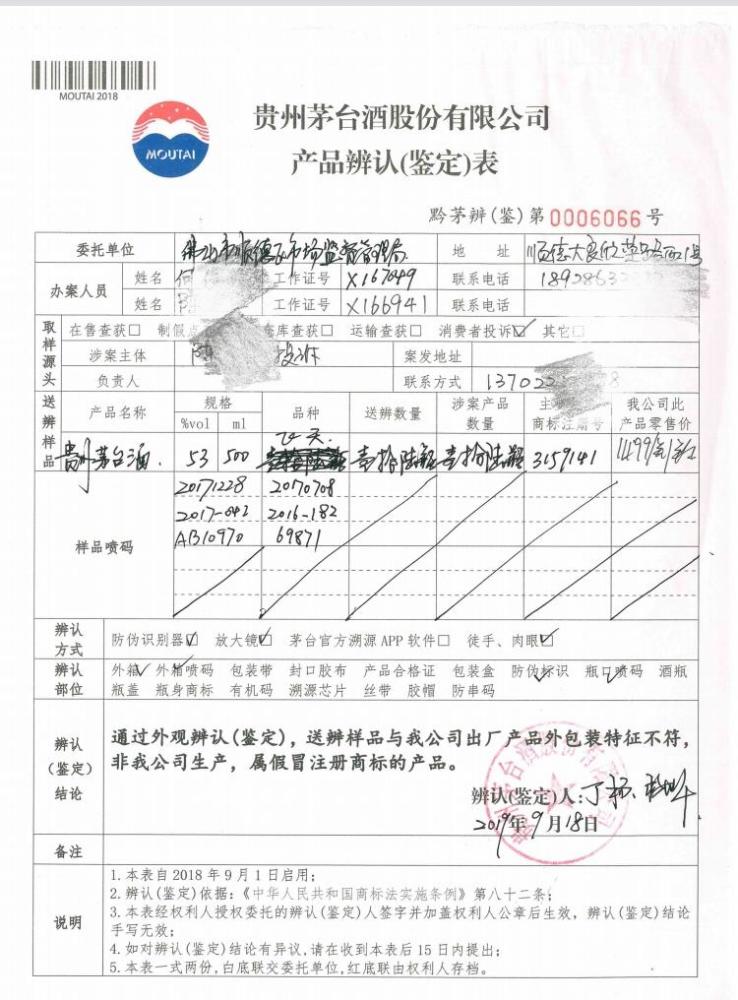 MOUTAI 2018
MOUTAI
贵州茅台酒股份有限公司
产品辨认(鉴定)表
黔茅辨(鉴)第0006066号
委托单位 佛山市顺德区市场监督管理局 地 址 顺德大良
办案人员 姓名 何 工作证号 X167049 联系电话 1892863
姓名 工作证号 X166941 联系电话
取样源头 在售查获□ 制假点 仓库查获□ 运输查获□ 消费者投诉☑ 其它□
涉案主体 陈 投诉 案发地址
负责人 联系方式 137022 8
送辨样品 产品名称 规格 品种 送辨数量 涉案产品数量 主 商标注册号 我公司此产品零售价
%vol ml
贵州茅台酒. 53 500 飞天 壹拾陆瓶 壹拾陆瓶 3159141 1499元/瓶
样品喷码
20171228 20170708
2017-042 2016-182
AB10970 69871
辨认方式 防伪识别器☑ 放大镜☑ 茅台官方溯源APP软件□ 徒手、肉眼☑
辨认部位 外箱 外箱喷码 包装带 封口胶布 产品合格证 包装盒 防伪标识 瓶口喷码 酒瓶
瓶盖 瓶身商标 有机码 溯源芯片 丝带 胶帽 防串码
辨认(鉴定)结论
通过外观辨认(鉴定)，送辨样品与我公司出厂产品外包装特征不符，
非我公司生产，属假冒注册商标的产品。
辨认(鉴定)人:丁杨、
2019年9月18日
备注
说明
1.本表自2018年9月1日启用；
2.辨认(鉴定)依据：《中华人民共和国商标法实施条例》第八十二条；
3.本表经权利人授权委托的辨认(鉴定)人签字并加盖权利人公章后生效，辨认(鉴定)结论
手写无效；
4.如对辨认(鉴定)结论有异议,请在收到本表后15日内提出；
5.本表一式两份,白底联交委托单位,红底联由权利人存档。